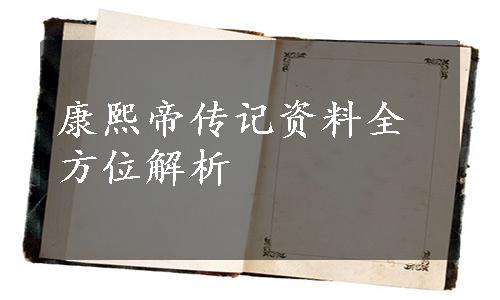 康熙帝传记资料全
方位解析